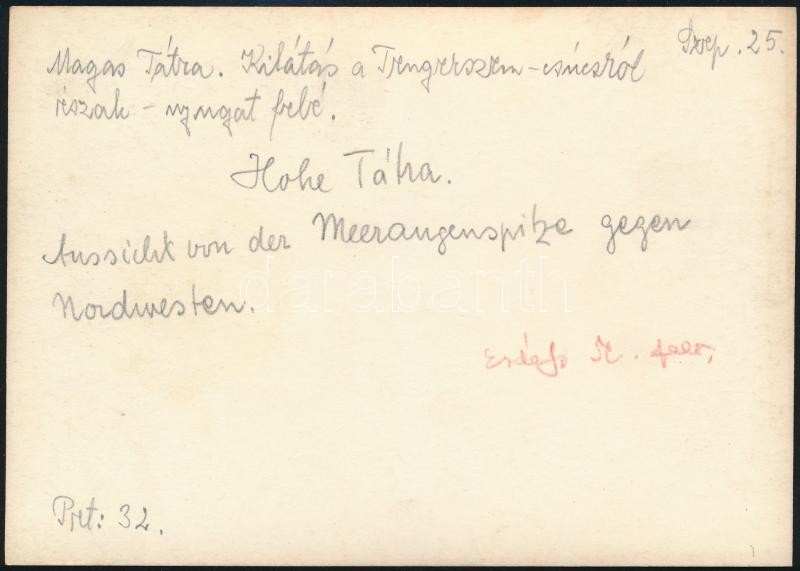 Szep. 25.
Magas Tátra. Kilátás a Tengerszem-csúcsról
észak-nyugat felé.
Hohe Tátra.
Aussicht von der Meeraugenspitze gegen
Nordwesten.
darabanth
Pret: 32.